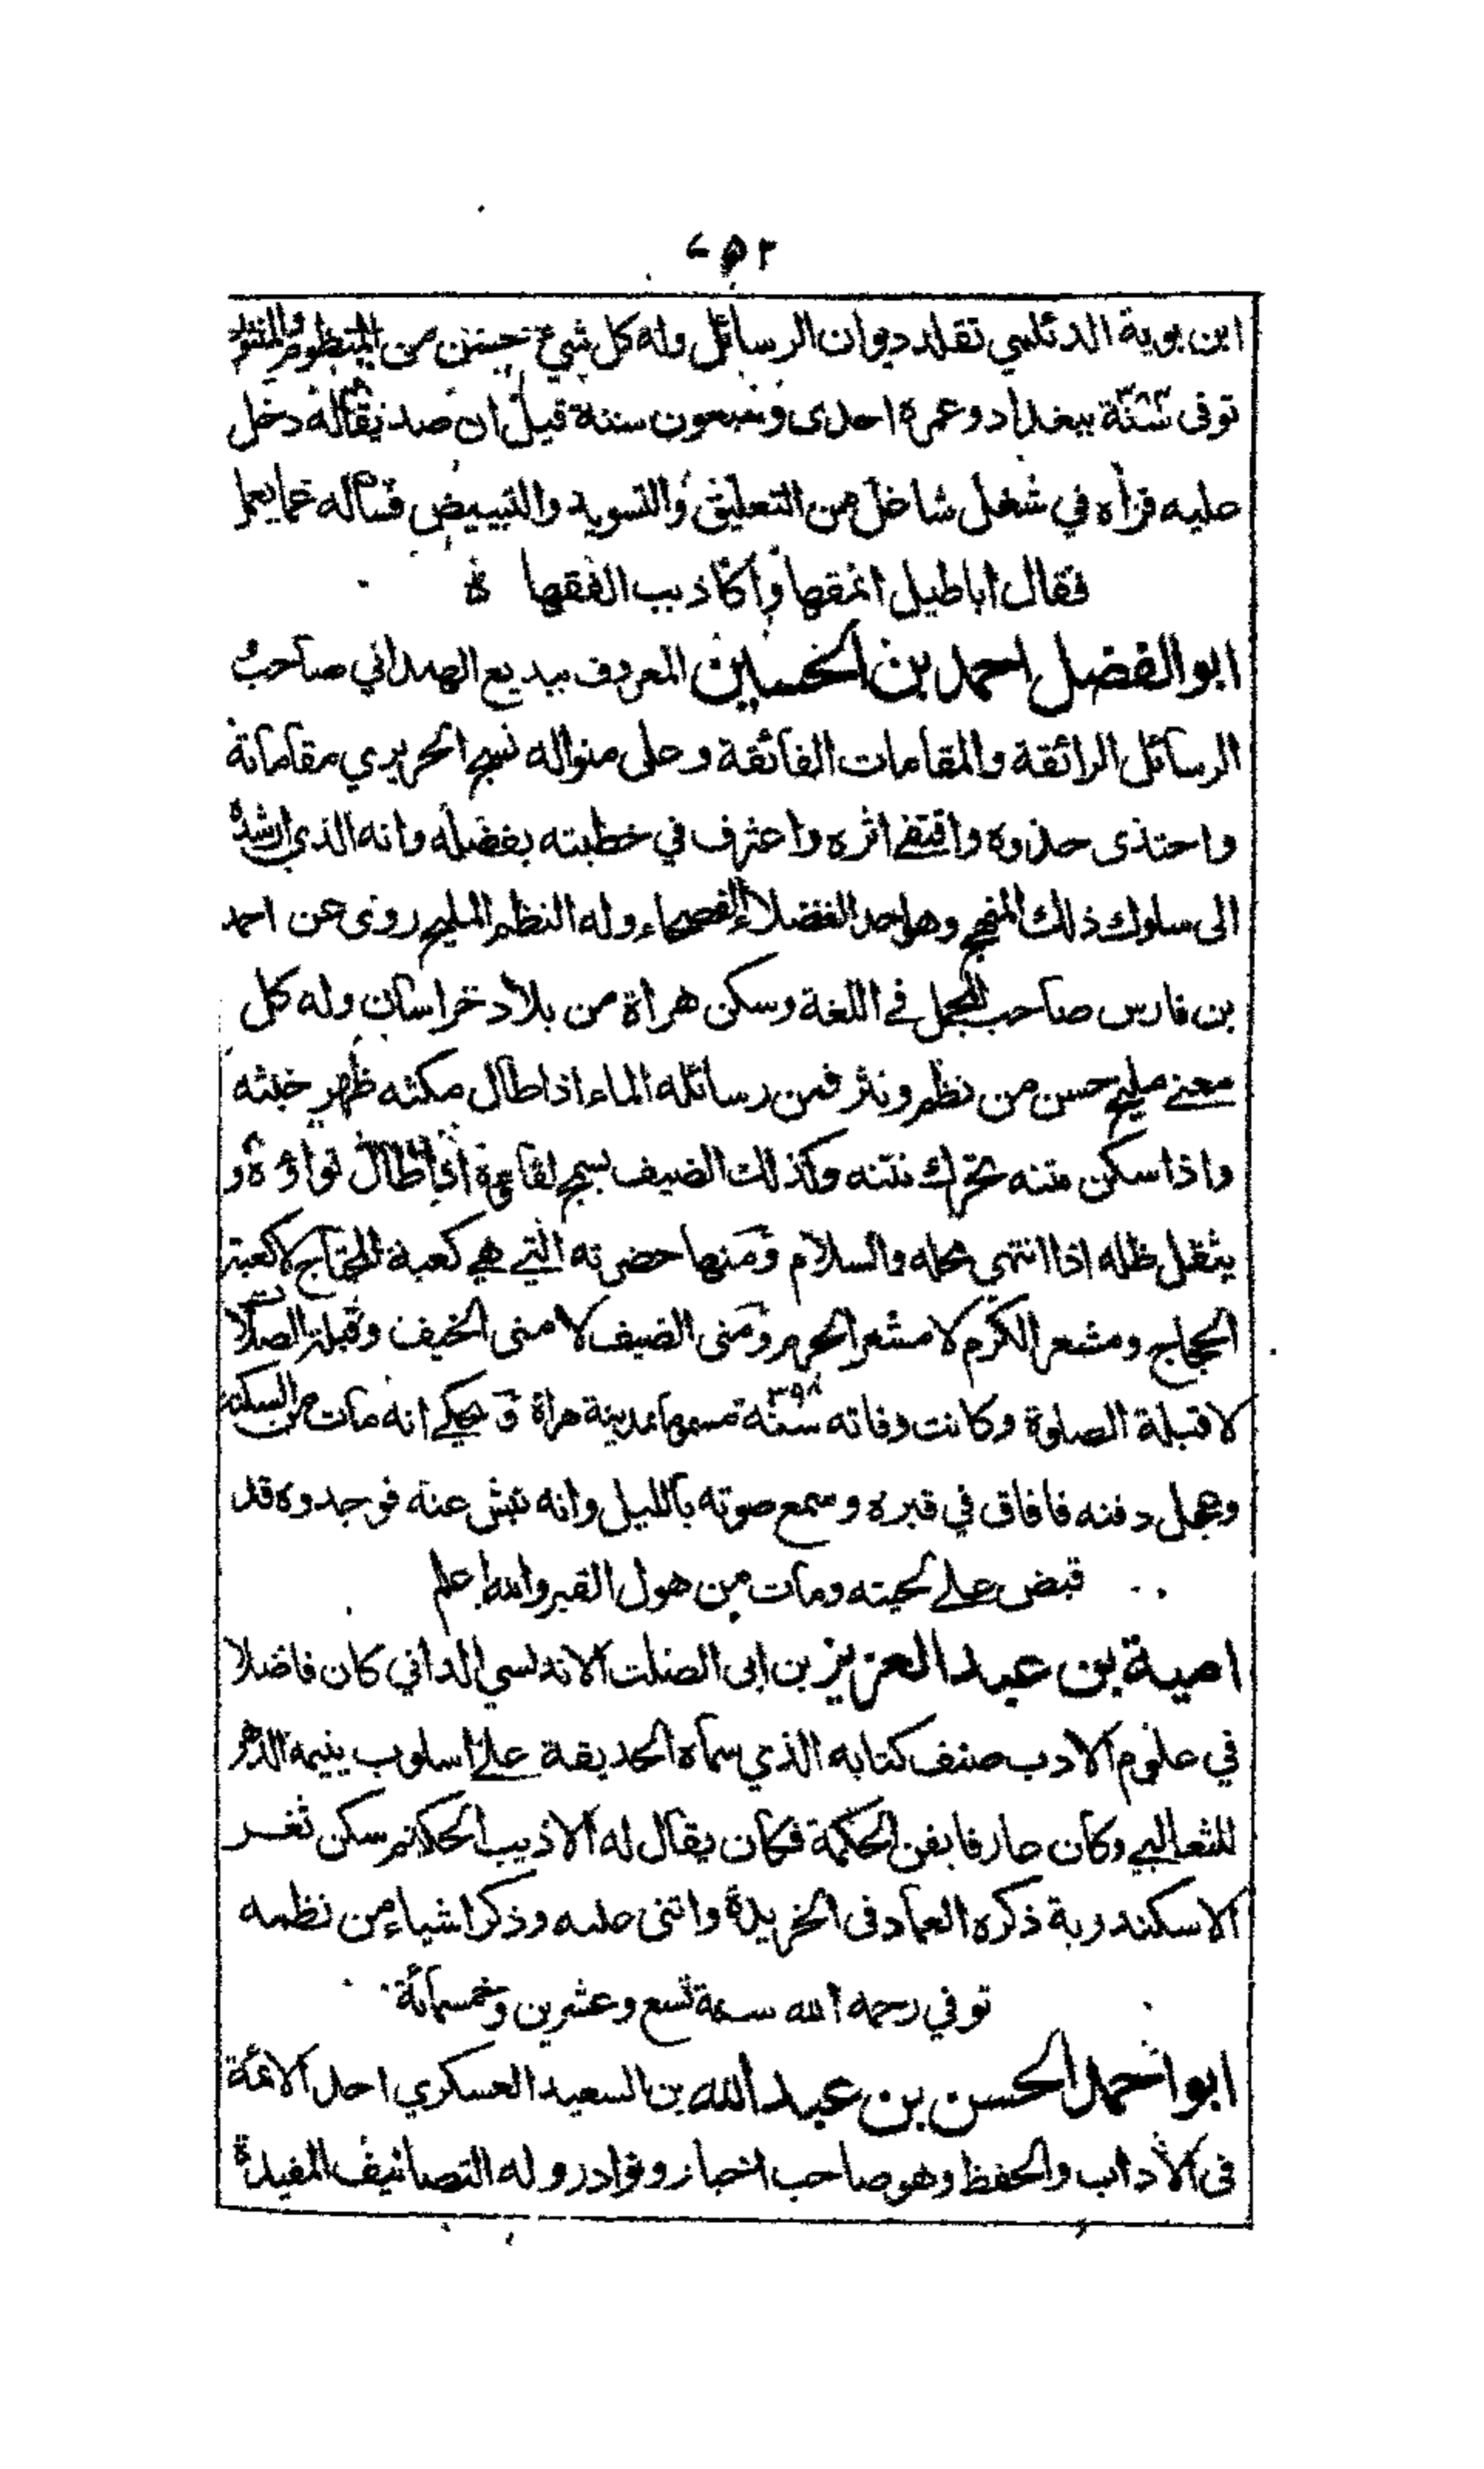 ابن بوية الدئلمي تقلد ديوان الرسائل وله كل شيء حسن من المنظوم والمنثور
توفى ببغداد وعمره احدى وسبعون سنة قيل ان صديقا له دخل
عليه فراه في شغل شاغل من التعليق والتسويد والتبييض فساله عما يعمل
فقال اباطيل انمقها واكاذيب الفقها
ابو الفضل احمد بن الحسين المعروف ببديع الهمداني صاحب
الرسائل الرائقة والمقامات الفائقة وعلى منواله نسج الحريري مقاماتة
واحتذى حذوه واقتفى اثره واعترف في خطبته بفضله وانه الذي ارشده
الى سلوك ذلك المنهج وهو احد الفضلاء الفصحاء وله النظم المليح روى عن احمد
بن فارس صاحب المجمل في اللغة وسكن هراة من بلاد خراسان وله كل
معنے مليح حسن من نظم ونثر فمن رسائله الماء اذا طال مكثه ظهر خبثه
واذا سكن متنه تحرك نتنه وكذلك الضيف يسمج لقاءه اذا طال ثواؤه و
يثقل ظله اذا انتهي محله والسلام ومنها حضرته التي هے كعبة المحتاج لا كعبة
الحجاج ومشعر الكرم لا مشعر الحرم ومنى الضيف لا منى الخيف وقبلة الصلا
لا قبلة الصلوة وكانت وفاته سنة ٣٩٨ مسموما بمدينة هراة و حكے انه مات من السكتة
وعجل دفنه فافاق في قبره وسمع صوته بالليل وانه نبش عنه فوجدوه قد
قبض علے لحيته ومات من هول القبر والله اعلم
امية بن عبد العزيز بن ابى الصلت الاندلسي الداني كان فاضلا
في علوم الادب صنف كتابه الذي سماه الحديقة علے اسلوب يتيمة الدهر
للثعالبي وكان عارفا بفن الحكمة فكان يقال له الاديب الحكيم سكن ثغر
الاسكندرية ذكره العماد فى الخريدة واثنى عليه وذكر اشياء من نظمه
توفي رحمه الله سنة تسع وعشرين وخمسمائة
ابو احمد الحسن بن عبد الله بن السعيد العسكري احد الائمة
فى الآداب والحفظ وهو صاحب اخبار ونوادر وله التصانيف المفيدة